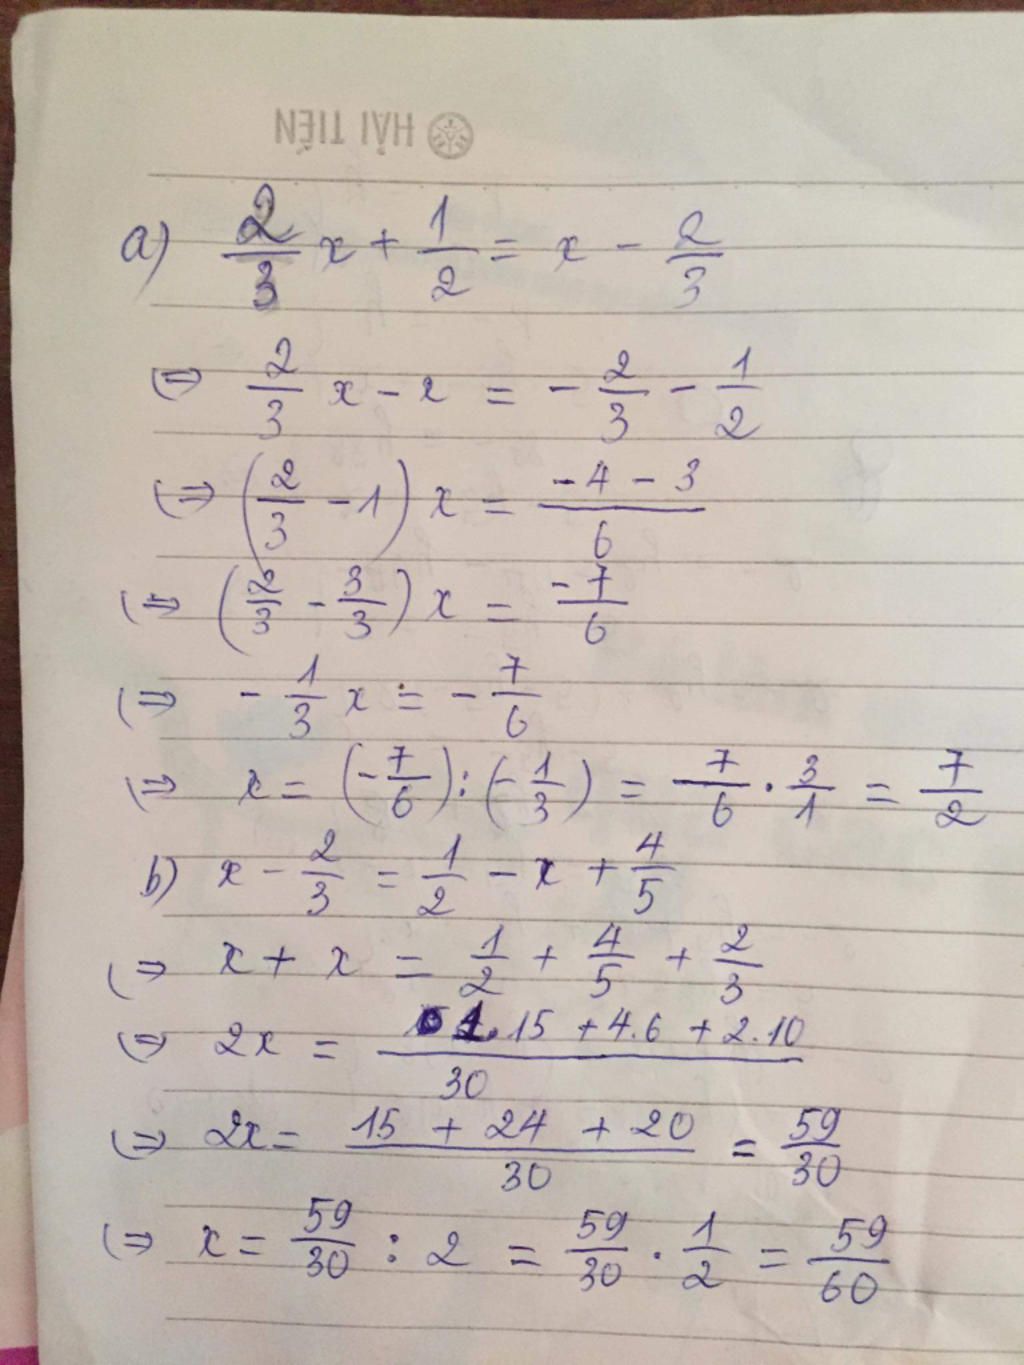 HẢI TIẾN
a) 2/3 x + 1/2 = x - 2/3
(⇒ 2/3 x - x = - 2/3 - 1/2
(⇒ (2/3 - 1) x = (-4 - 3)/6
(⇒ (2/3 - 3/3) x = -7/6
(⇒ - 1/3 x = - 7/6
(⇒ x = (- 7/6) : (- 1/3) = 7/6 . 3/1 = 7/2
b) x - 2/3 = 1/2 - x + 4/5
(⇒ x + x = 1/2 + 4/5 + 2/3
(⇒ 2x = (1.15 + 4.6 + 2.10)/30
(⇒ 2x = (15 + 24 + 20)/30 = 59/30
(⇒ x = 59/30 : 2 = 59/30 . 1/2 = 59/60